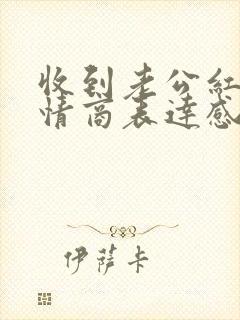 收到老公红
情商表达感
伊萨卡